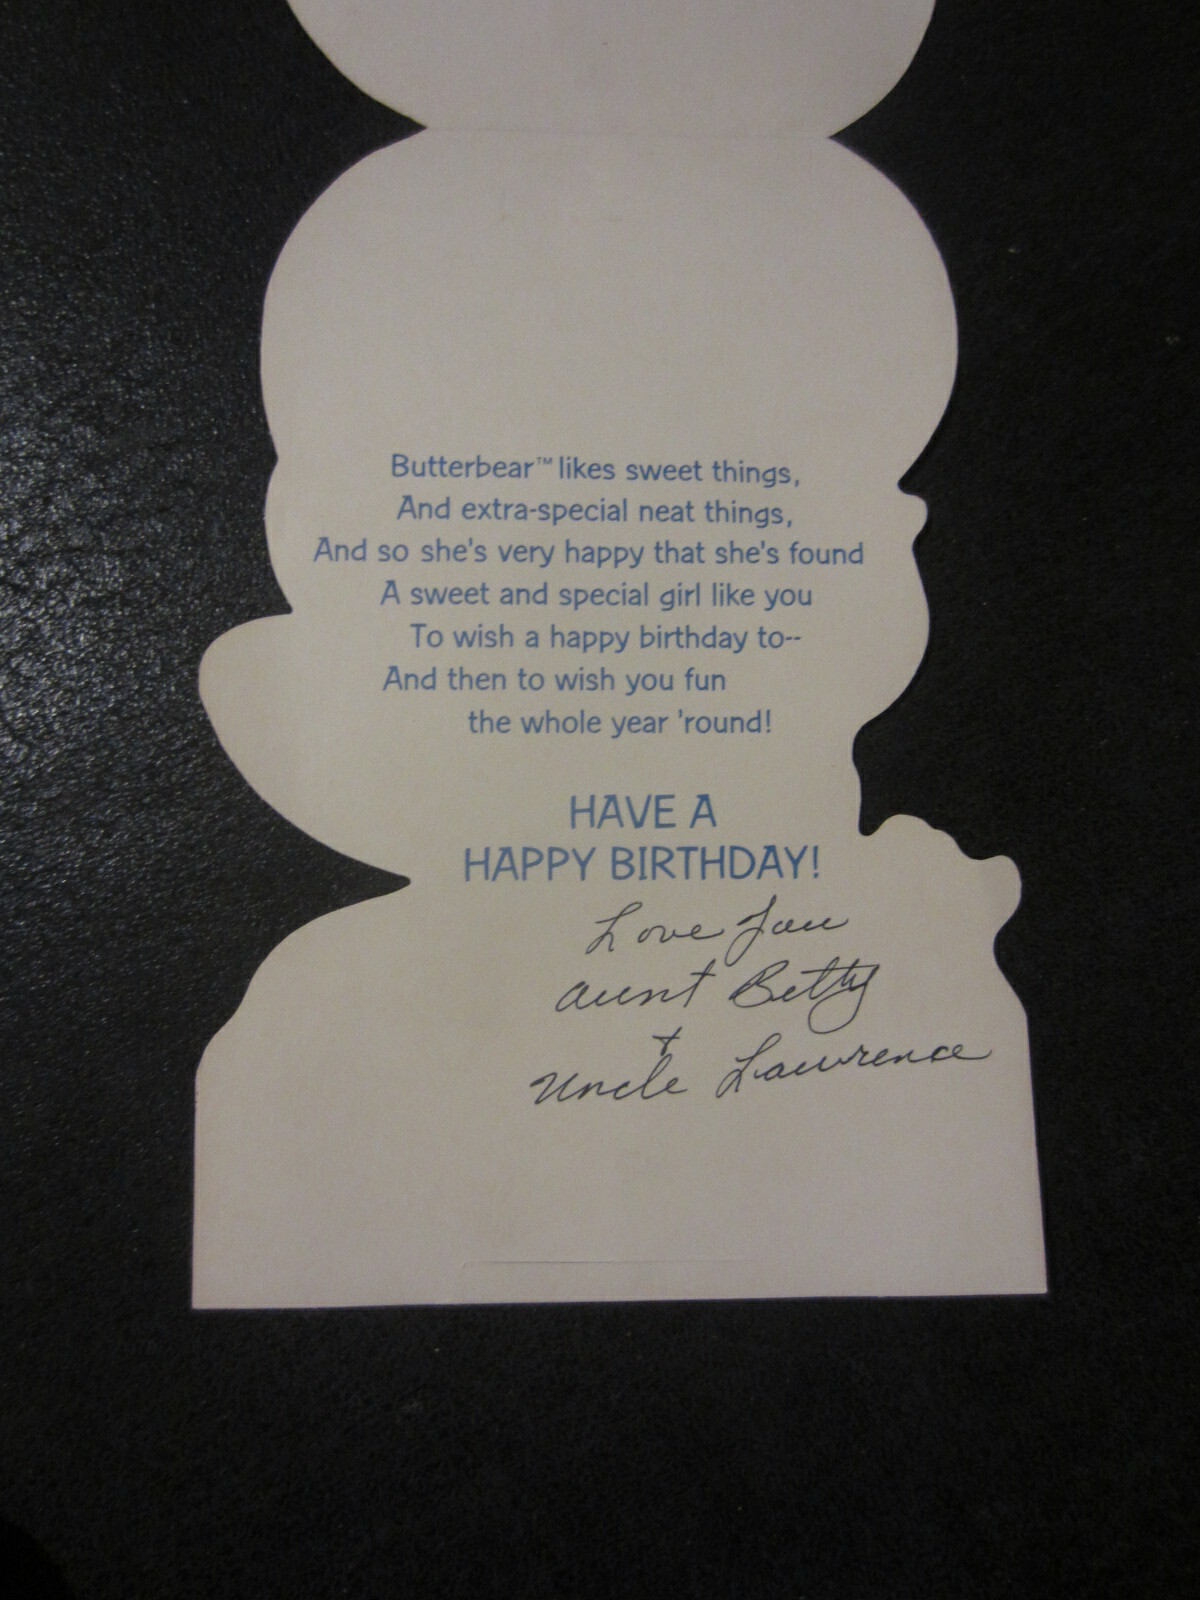 Butterbear™ likes sweet things,
And extra-special neat things,
And so she's very happy that she's found
A sweet and special girl like you
To wish a happy birthday to--
And then to wish you fun
the whole year 'round!
HAVE A
HAPPY BIRTHDAY!
Love
Aunt Betty
+
Uncle Lawrence